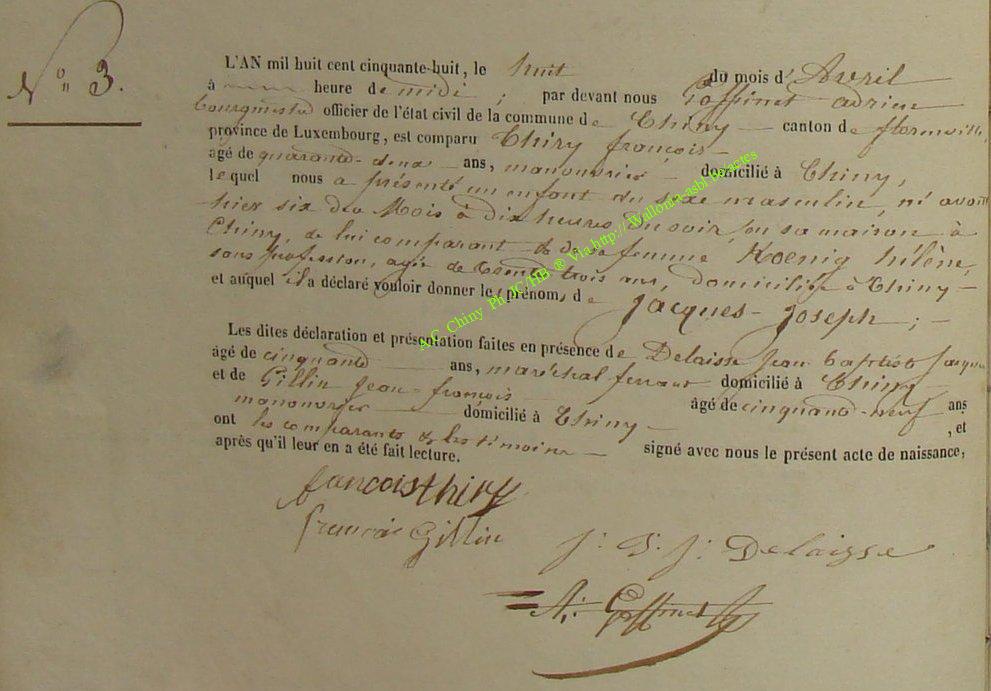 N° 3.
L'AN mil huit cent cinquante-huit, le huit du mois d' Avril
à heure de midi ; par devant nous Goffinet adrien
bourgmestre officier de l'état civil de la commune de Chiny canton de florenville,
province de Luxembourg, est comparu Thiry françois
agé de quarante-deux ans, manouvrier domicilié à Chiny,
lequel nous a présenté un enfant du sexe masculin, né avant
hier six du Mois à dix heures du soir, en sa maison à
Chiny, de lui comparant & de sa femme Koenig hélène,
sans profession, agée de trente trois ans, domiciliée à Chiny
et auquel il a déclaré vouloir donner les prénoms de Jacques-Joseph ;
Les dites déclaration et présentation faites en présence de Delaisse Jean baptiste Jacques
âgé de cinquante ans, maréchal ferrant domicilié à Chiny
et de Gillin Jean-françois âgé de cinquante-neuf ans
manouvrier domicilié à Chiny , et
ont les comparants & les témoins signé avec nous le présent acte de naissance,
après qu'il leur en a été fait lecture.
francois thiry
francois Gillin
J. B. J. Delaisse
A. Goffinet
A.G. Chiny Ph JC/HB ® Via http:// Wallonia-asbl be/actes